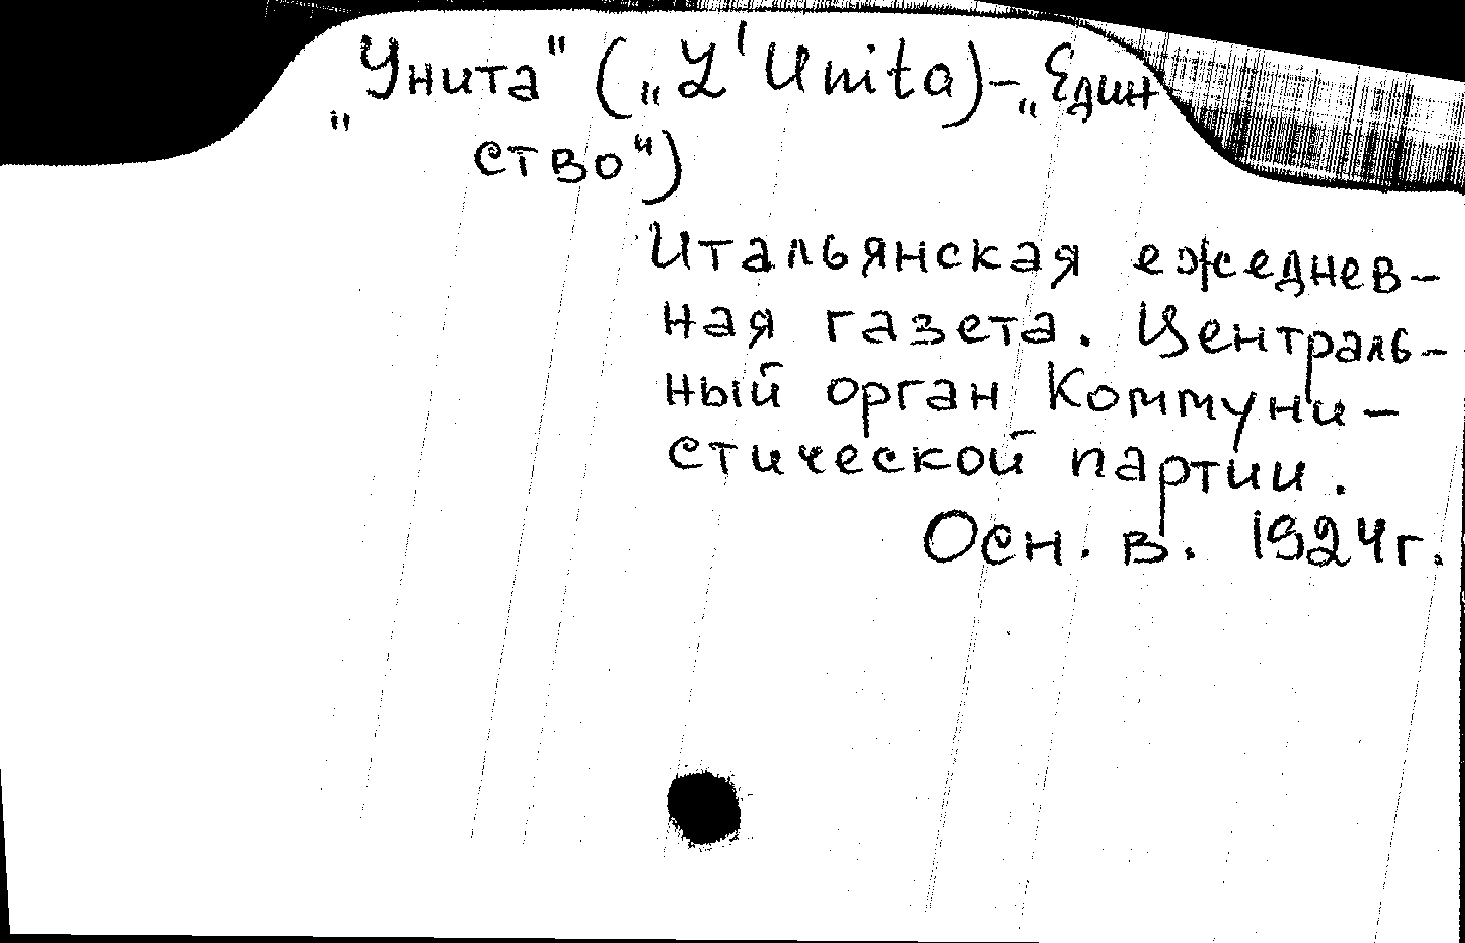 „Унита" („L'Unita)-„Един
ство")
Итальянская ежеднев-
ная газета. Централь-
ный орган Коммуни-
стической партии.
Осн. в. 1924г.